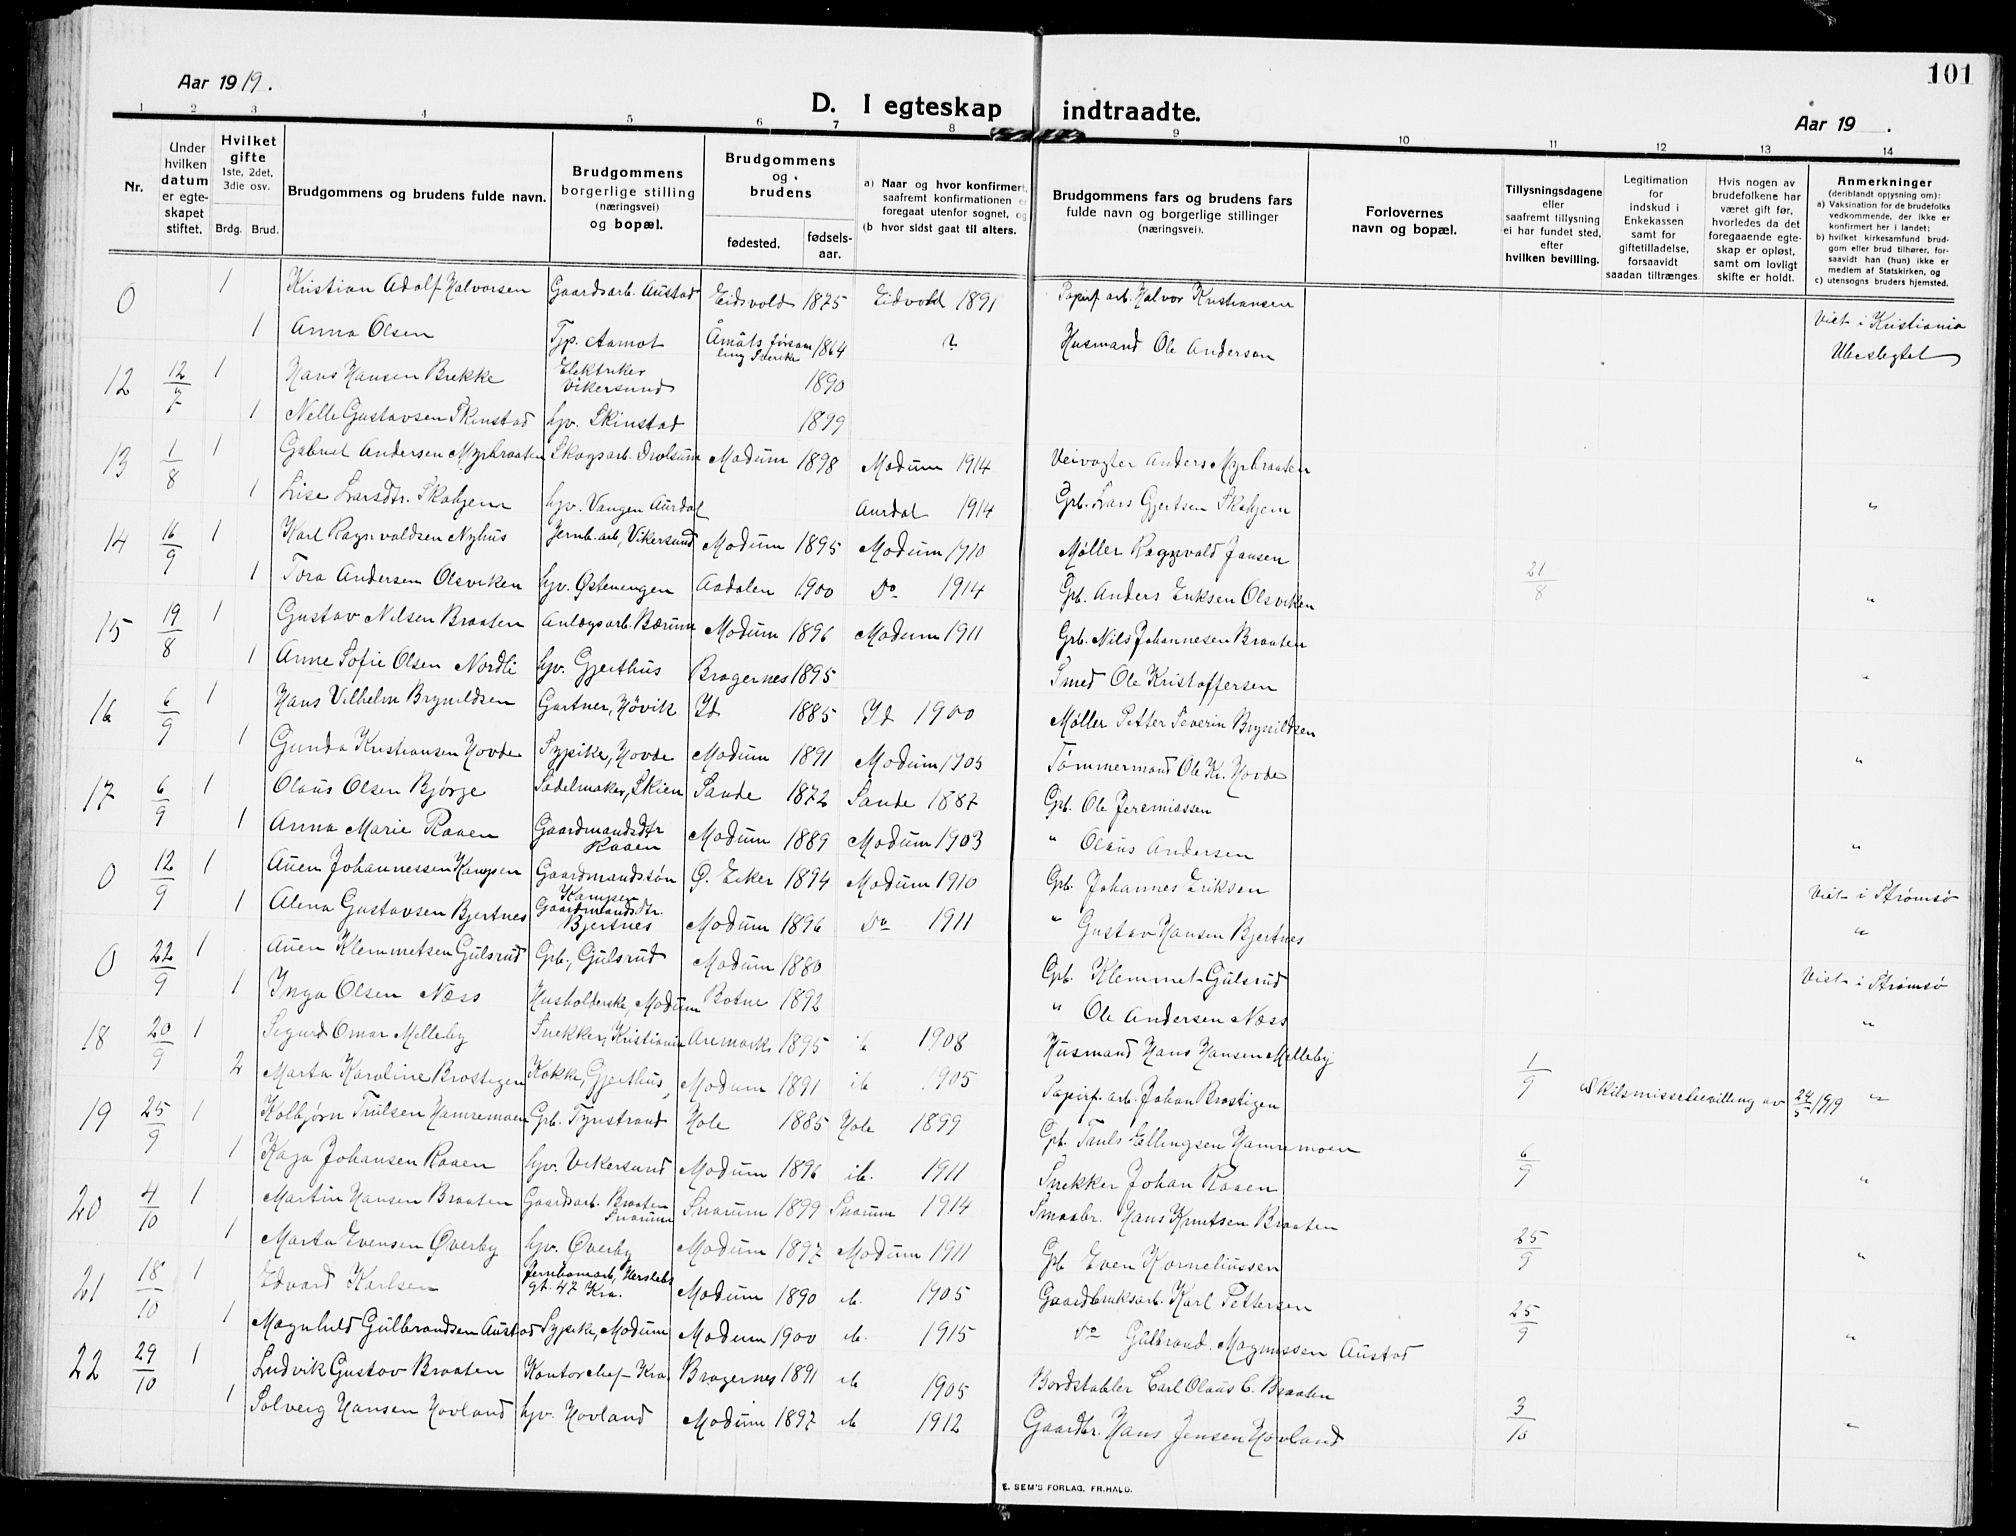 101
Aar 1919.
D. I egteskap indtraadte.
Aar 19 .
1 2 3 4 5 6 7 8 9 10 11 12 13 14
Nr.
Under hvilken datum er egte-skapet stiftet.
Hvilket gifte 1ste, 2det, 3die osv.
Brdg. Brud.
Brudgommens og brudens fulde navn.
Brudgommens borgerlige stilling (næringsvei) og bopæl.
Brudgommens og brudens
fødested. fødsels-aar.
a) Naar og hvor konfirmert, saafremt konfirmationen foregaat utenfor sognet, og
(b hvor sidst gaat til alters.
Brudgommens fars og brudens fars fulde navn og borgerlige stillinger (næringsvei).
Forlovernes navn og bopæl.
Tillysningsdagene eller saafremt tillysning ei har fundet sted, efter hvilken bevilling.
Legitimation for indskud i Enkekassen samt for giftetilladelse, forsaavidt saadan tiltrænges
Hvis nogen av brudefolkene har været gift før, hvorledes da det foregaaende egte-skap er opløst, samt om lovligt skifte er holdt.
Anmerkninger (deriblandt opjysning om): a) Vaksination for de brudefolks vedkommende, der ikke er konfirmert her i landet; b) hvilket kirkesamfund brud-gom eller brud tilhører, for-saavidt han (hun) ikke er medlem af Statskirken, og c) utensogns bruders hjemsted.
0 1 Kristian Adolf Halvorsen Gaardsarb. Austad Eidsvold 1875 Eidvold 1891 Papirf. arb. Halvor Kristiansen Viet i Kristiania
1 Anna Olsen Tjp. Aamot Åmåts försam ling Sverike 1864 ? Husmand Ole Anderson Ubeslegtet
12 12/7 1 Hans Hansen Brekke Elektriker Vikersund 1890
1 Nelle Gustavsen Skinstad hjv. Skinstad 1899
13 1/8 1 Gabriel Andersen Myrbraaten Skogsarb. Drolsum Modum 1898 Modum 1914 Veivogter Anders Myrbraaten
1 Lise Larsdtr. Skohjem hjv. Vangen Aurdal Aurdal 1914 Grb. Lars Gjertsen Skohjem "
14 16/9 1 Karl Ragnvaldsen Nyhus Jernb. arb, Vikersund Modum 1895 Modum 1910 Møller Ragnvald Jansen 21/8
1 Tora Andersen Olsviken hjv. Østenengen Aadalen 1900 Do 1914 Grb. Anders Eriksen Olsviken "
15 19/8 1 Gustav Nilsen Braaten Anlægsarb. Bærum Modum 1896 Modum 1911 Grb. Nils Johannesen Braaten
1 Anne Sofie Olsen Nordli hjv. Gjerthus Bragernes 1895 Smed Ole Kristoffersen "
16 6/9 1 Hans Vilhelm Brynildsen Gartner, Høvik Id 1885 Id 1900 Møller Petter Severin Brynildsen
1 Gunda Kristiansen Hovde Sypike, Hovde Modum 1891 Modum 1905 Tømmermand Ole Kr. Hovde "
17 6/9 1 Olaus Olsen Bjørge Sadelmaker, Skien Sande 1872 Sande 1887 Grb. Ole Jeremiassen
1 Anna Marie Raaen Gaardmandsdtr Raaen Modum 1889 Modum 1903 " Olaus Andersen "
0 12/9 1 Auen Johannessen Kampen Gaardmandssøn Kampen Ø. Eiker 1894 Modum 1910 Grb. Johannes Eriksen Viet i Strømsø
1 Alena Gustavsen Bjertnes Gaardmandsdtr. Bjertnes Modum 1896 Do 1911 " Gustav Hansen Bjertnes "
0 22/9 1 Auen Klemmetsen Gulsrud Grb., Gulsrud Modum 1880 Grb. Klemmet Gulsrud Viet i Strømsø
1 Inga Olsen Næss Husholderske, Modum Botne 1892 " Ole Andersen Næss "
18 20/9 1 Sigurd Omar Melleby Snekker, Kristiania Aremark 1895 ib 1908 Husmand Hans Hansen Melleby 1/9
2 Marta Karoline Brostigen Kokke, Gjerthus, Modum 1891 ib 1905 Papirf. arb. Johan Brostigen Skilsmissebevilling av 24/5 1919 "
19 25/9 1 Kolbjørn Trulsen Hamremoen Grb. Tynstrand Hole 1885 Hole 1899 Grb. Truls Ellingsen Hamremoen 6/9
1 Kaja Johansen Raaen hjv. Vikersund Modum 1896 ib. 1911 Snekker Johan Raaen "
20 4/10 1 Martin Hansen Braaten Gaardsarb. Braaten Snarum Snarum 1899 Snarum 1914 Smaabr. Hans Knutsen Braaten 25/9
1 Marta Evensen Øverby hjv. Øverby Modum 1897 Modum 1911 Grb Even Korneliussen "
21 18/10 1 Edvard Karlsen Jernbanearb, Herslebs gt. 47 Kra. Modum 1890 ib. 1905 Gaardbruksarb. Karl Pettersen 25/9
1 Magnhild Gulbrandsen Austad Sypike, Modum Modum 1900 ib. 1915 do Gulbrand Magnussen Austad "
22 29/10 1 Ludvik Gustav Braaten Kontorchef Kra. Bragernes 1891 ib 1905 Bordstabler Carl Olaus C. Braaten 3/10
1 Solveig Hansen Hovland hjv. Hovland Modum 1897 ib 1912 Gaardbr. Hans Jensen Hovland "
E. SEM'S FORLAG, FR.HALD.